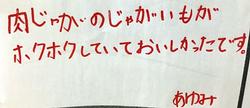 肉じゃがのじゃがいもが
ホクホクしていておいしかったです。
あゆみ